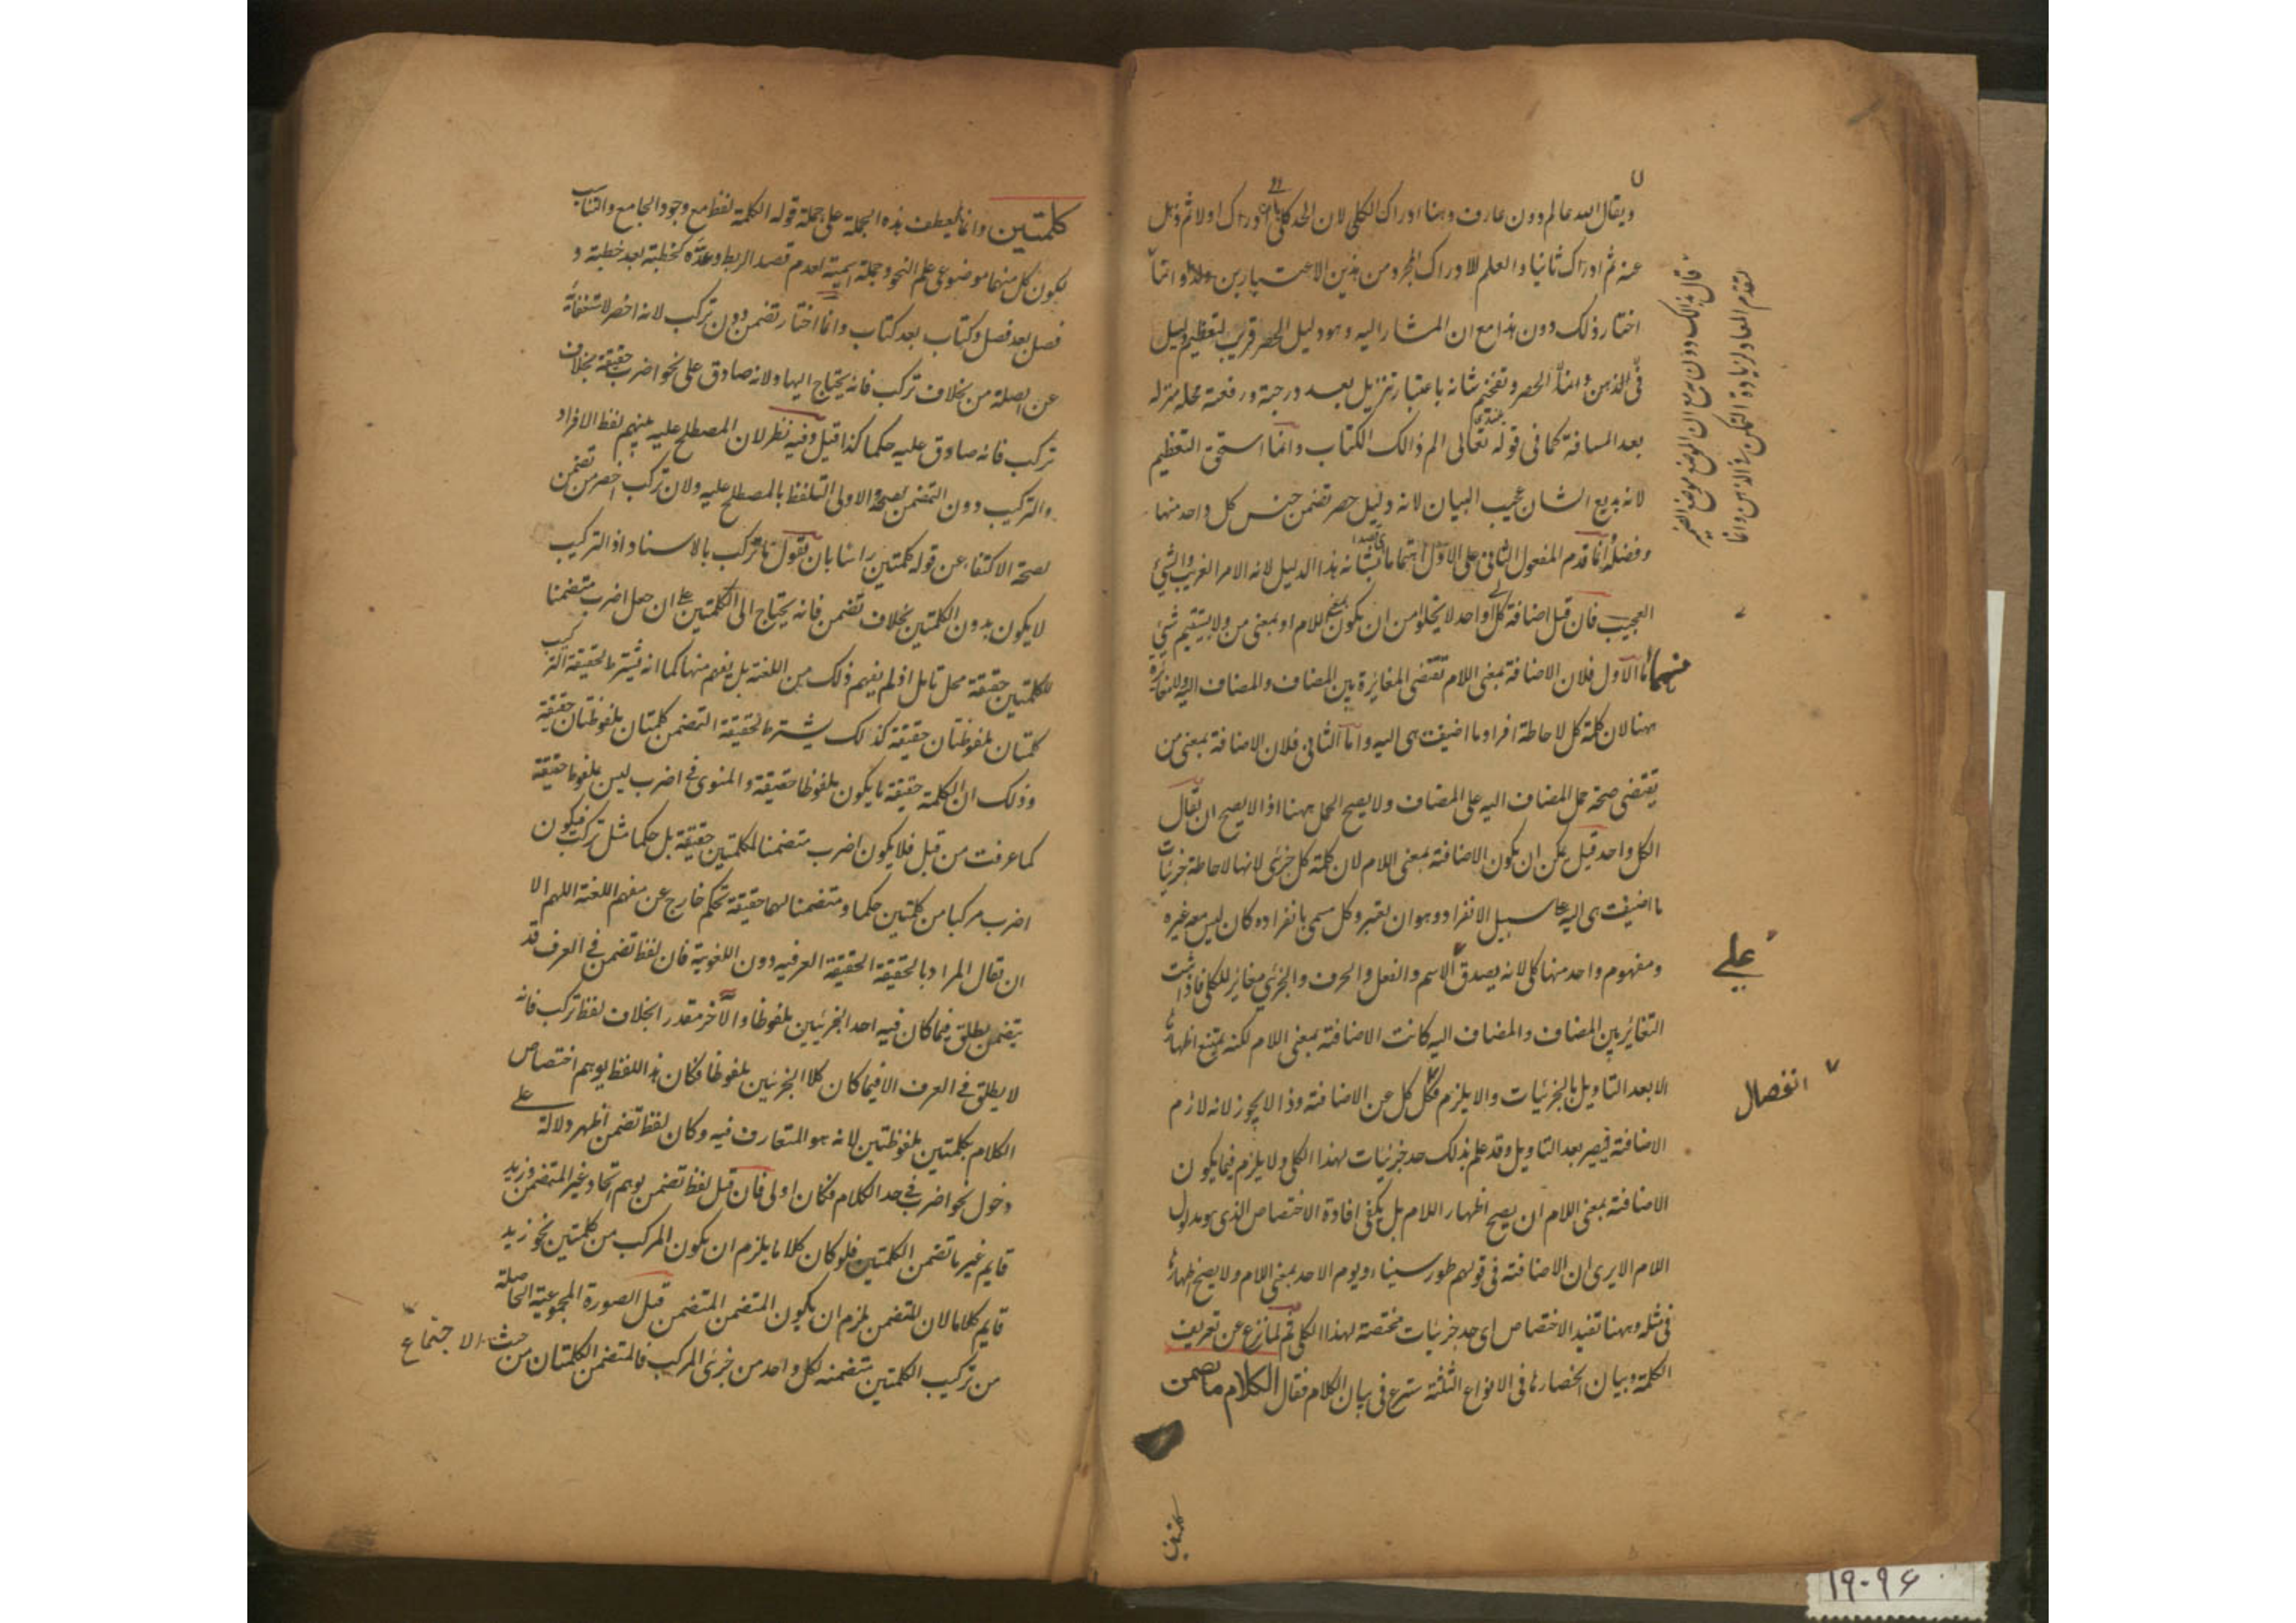 ويقال الله عالم دون عارف وهنا ادراك الكلى لان الحد كلى او ادراك اولا ثم ذهل
عنه ثم ادراك ثانيا والعلم للادراك المجرد من هذين الاعتبارين وانما
اختار ذلك دون هذا مع ان المشار اليه وهو دليل الحصر قريب لتعظيم دليل
الحصر وتفخيم شانه باعتبار تنزيل بعد درجته ورفعة محله منزلة
بعد المسافة كما فى قوله تعالى الم ذالك الكتاب وانما استحق التعظيم
لانه بديع الشان عجيب البيان لانه دليل حصر تضمن جنس كل واحد منها
وفصله وانما قدم المفعول الثانى على الاول اهتماما بشانه هذا الدليل لانه الامر الغريب والشئ
العجيب فان قيل اضافة كل الى واحد لا يخلوا من ان يكون بمعنى اللام او بمعنى من ولا يستقيم شئ
منهما اما الاول فلان الاضافة بمعنى اللام تقتضى المغايرة بين المضاف والمضاف اليه ولا مغايرة
ههنا لان كلمة كل لاحاطة افراد ما اضيفت هى اليه واما الثانى فلان الاضافة بمعنى من
يقتضى صحة حمل المضاف اليه على المضاف ولا يصح الحمل ههنا اذ لا يصح ان يقال
الكل واحد قيل يمكن ان يكون الاضافة بمعنى اللام لان كلمة كل جزئى لانها لاحاطة جزئيات
ما اضيفت هى اليه على سبيل الانفراد وهو ان يعتبر كل مسمى بانفراده كان ليس معه غيره
ومفهوم واحد منها كلى لانه يصدق الاسم والفعل والحرف والجزئى مغاير للكلى فاذا ثبت
التغاير بين المضاف والمضاف اليه كانت الاضافة بمعنى اللام لكنه يمتنع اظهاره
الا بعد التاويل بالجزئيات والا يلزم فك كل عن الاضافة وذا لا يجوز لانه لازم
الاضافة فيصير بعد التاويل وقد علم بذلك حد جزئيات لهذا الكلى ولا يلزم فيما يكون
الاضافة بمعنى اللام ان يصح اظهار اللام بل يكفى افادة الاختصاص الذى هو مدلول
اللام الا يرى ان الاضافة فى قولهم طور سيناء ويوم الاحد بمعنى اللام ولا يصح اظهاره
فى مثله وههنا تفيد الاختصاص اى حد جزئيات مختصة لهذا الكلى ثم لما فرغ عن تعريف
الكلمة وبيان انحصارها فى الانواع الثلثة شرع فى بيان الكلام فقال الكلام ما تضمن
على
انفصال
كلمتين وانما لم يعطف هذه الجملة على جملة قوله الكلمة لفظ مع وجود الجامع والتناسب
لكون كل منهما موضوع علم النحو وجملة اسمية لعدم قصد الربط وعده كخطبة بعد خطبة و
فصل بعد فصل وكتاب بعد كتاب وانما اختار تضمن دون تركب لانه اخصر لاستغنائه
عن الصلة من بخلاف تركب فانه يحتاج اليها ولانه صادق على نحو اضرب حقيقة بخلاف
تركب فانه صادق عليه حكما كذا قيل وفيه نظر لان المصطلح عليه بينهم لفظ الافراد
والتركيب دون التضمن والاولى التلفظ بالمصطلح عليه ولان تركب اخصر من تضمن
لصحة الاكتفاء عن قوله كلمتين راسا بان نقول ما تركب بالاسناد اذ التركيب
لا يكون بدون الكلمتين بخلاف تضمن فانه يحتاج الى الكلمتين على ان جعل اضرب متضمنا
للكلمتين حقيقة محل تامل اذ لم يفهم ذلك من اللغة بل يفهم منها كما انه يشترط لحقيقة التركيب
كلمتان ملفوظتان حقيقة كذلك يشترط لحقيقة التضمن كلمتان ملفوظتان حقيقة
وذلك ان الكلمة حقيقة ما يكون ملفوظا حقيقة والمنوى فى اضرب ليس ملفوظا حقيقة
كما عرفت من قبل فلا يكون اضرب متضمنا لكلمتين حقيقة بل حكما مثل تركب فيكون
اضرب مركبا من كلمتين حكما ومتضمنا لهما حقيقة تحكم خارج عن مفهم اللغة اللهم الا
ان يقال المراد بالحقيقة الحقيقة العرفيه دون اللغوية فان لفظ تضمن فى العرف قد
يتضمن يطلق فيما كان فيه احد الجزئيين ملفوظا والآخر مقدرا بخلاف لفظ تركب فانه
لا يطلق فى العرف الا فيما كان كلا الجزئين ملفوظا فكان هذا اللفظ يوهم اختصاص
الكلام بكلمتين ملفوظتين لانه هو المتعارف فيه وكان لفظ تضمن اظهر دلالة على
دخول نحو اضرب فى حد الكلام فكان اولى فان قيل لفظ تضمن يوهم اتحاد غير المتضمن وزيد
قايم غير ما تضمن الكلمتين فلو كان كلاما يلزم ان يكون المركب من كلمتين نحو زيد
قايم كلاما لان التضمن يلزم ان يكون المتضمن المتضمن قيل الصورة المجموعية الحاصلة
من تركيب الكلمتين متضمنه لكل واحد من جزئى المركب فالمتضمن الكلمتان من حيث الاجتماع
كلمتين
۱۹۰۹۶